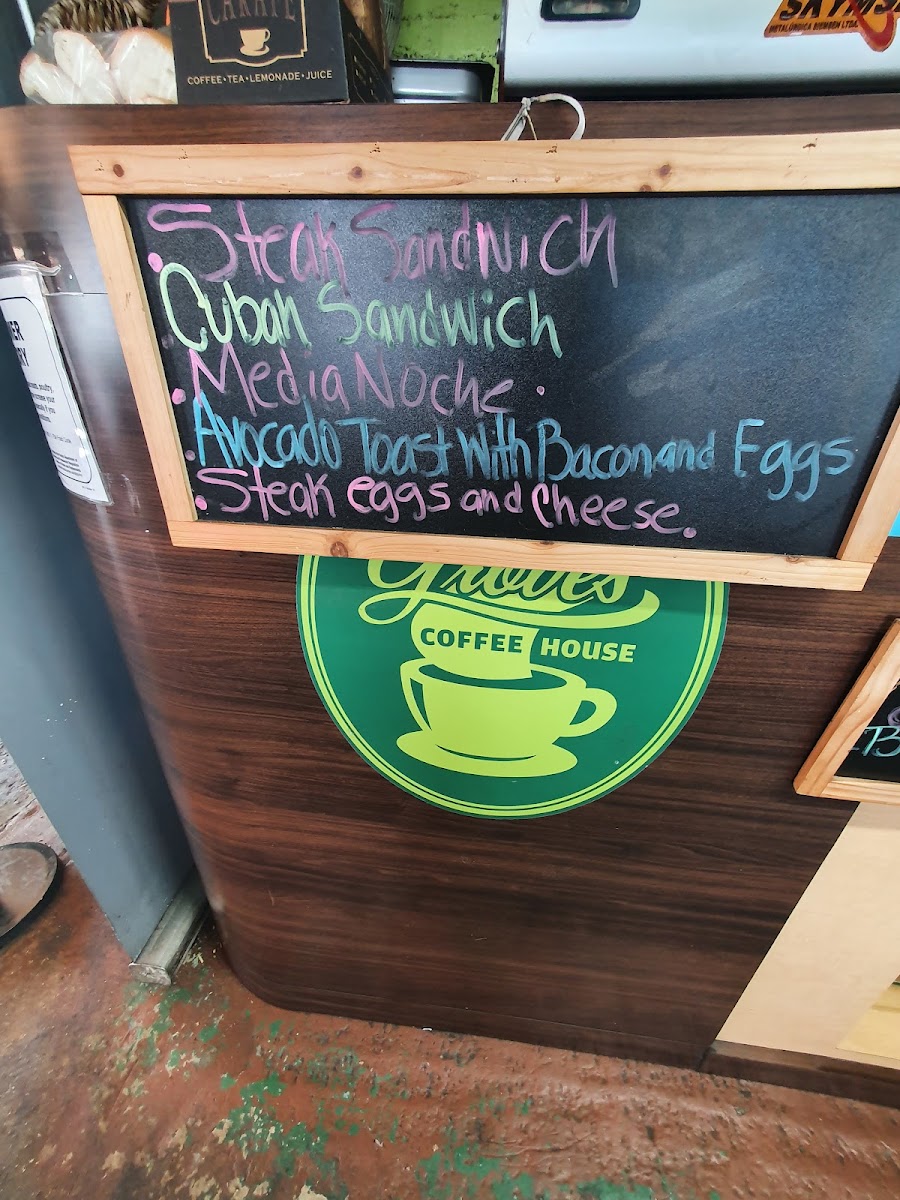 CARAFE
COFFEE • TEA • LEMONADE • JUICE
METALÚRGICA SIEMSEN LTDA
• Steak Sandwich
Cuban Sandwich
• Media Noche •
• Avocado Toast With Bacon and Eggs
• Steak eggs and Cheese.
Groves
COFFEE HOUSE